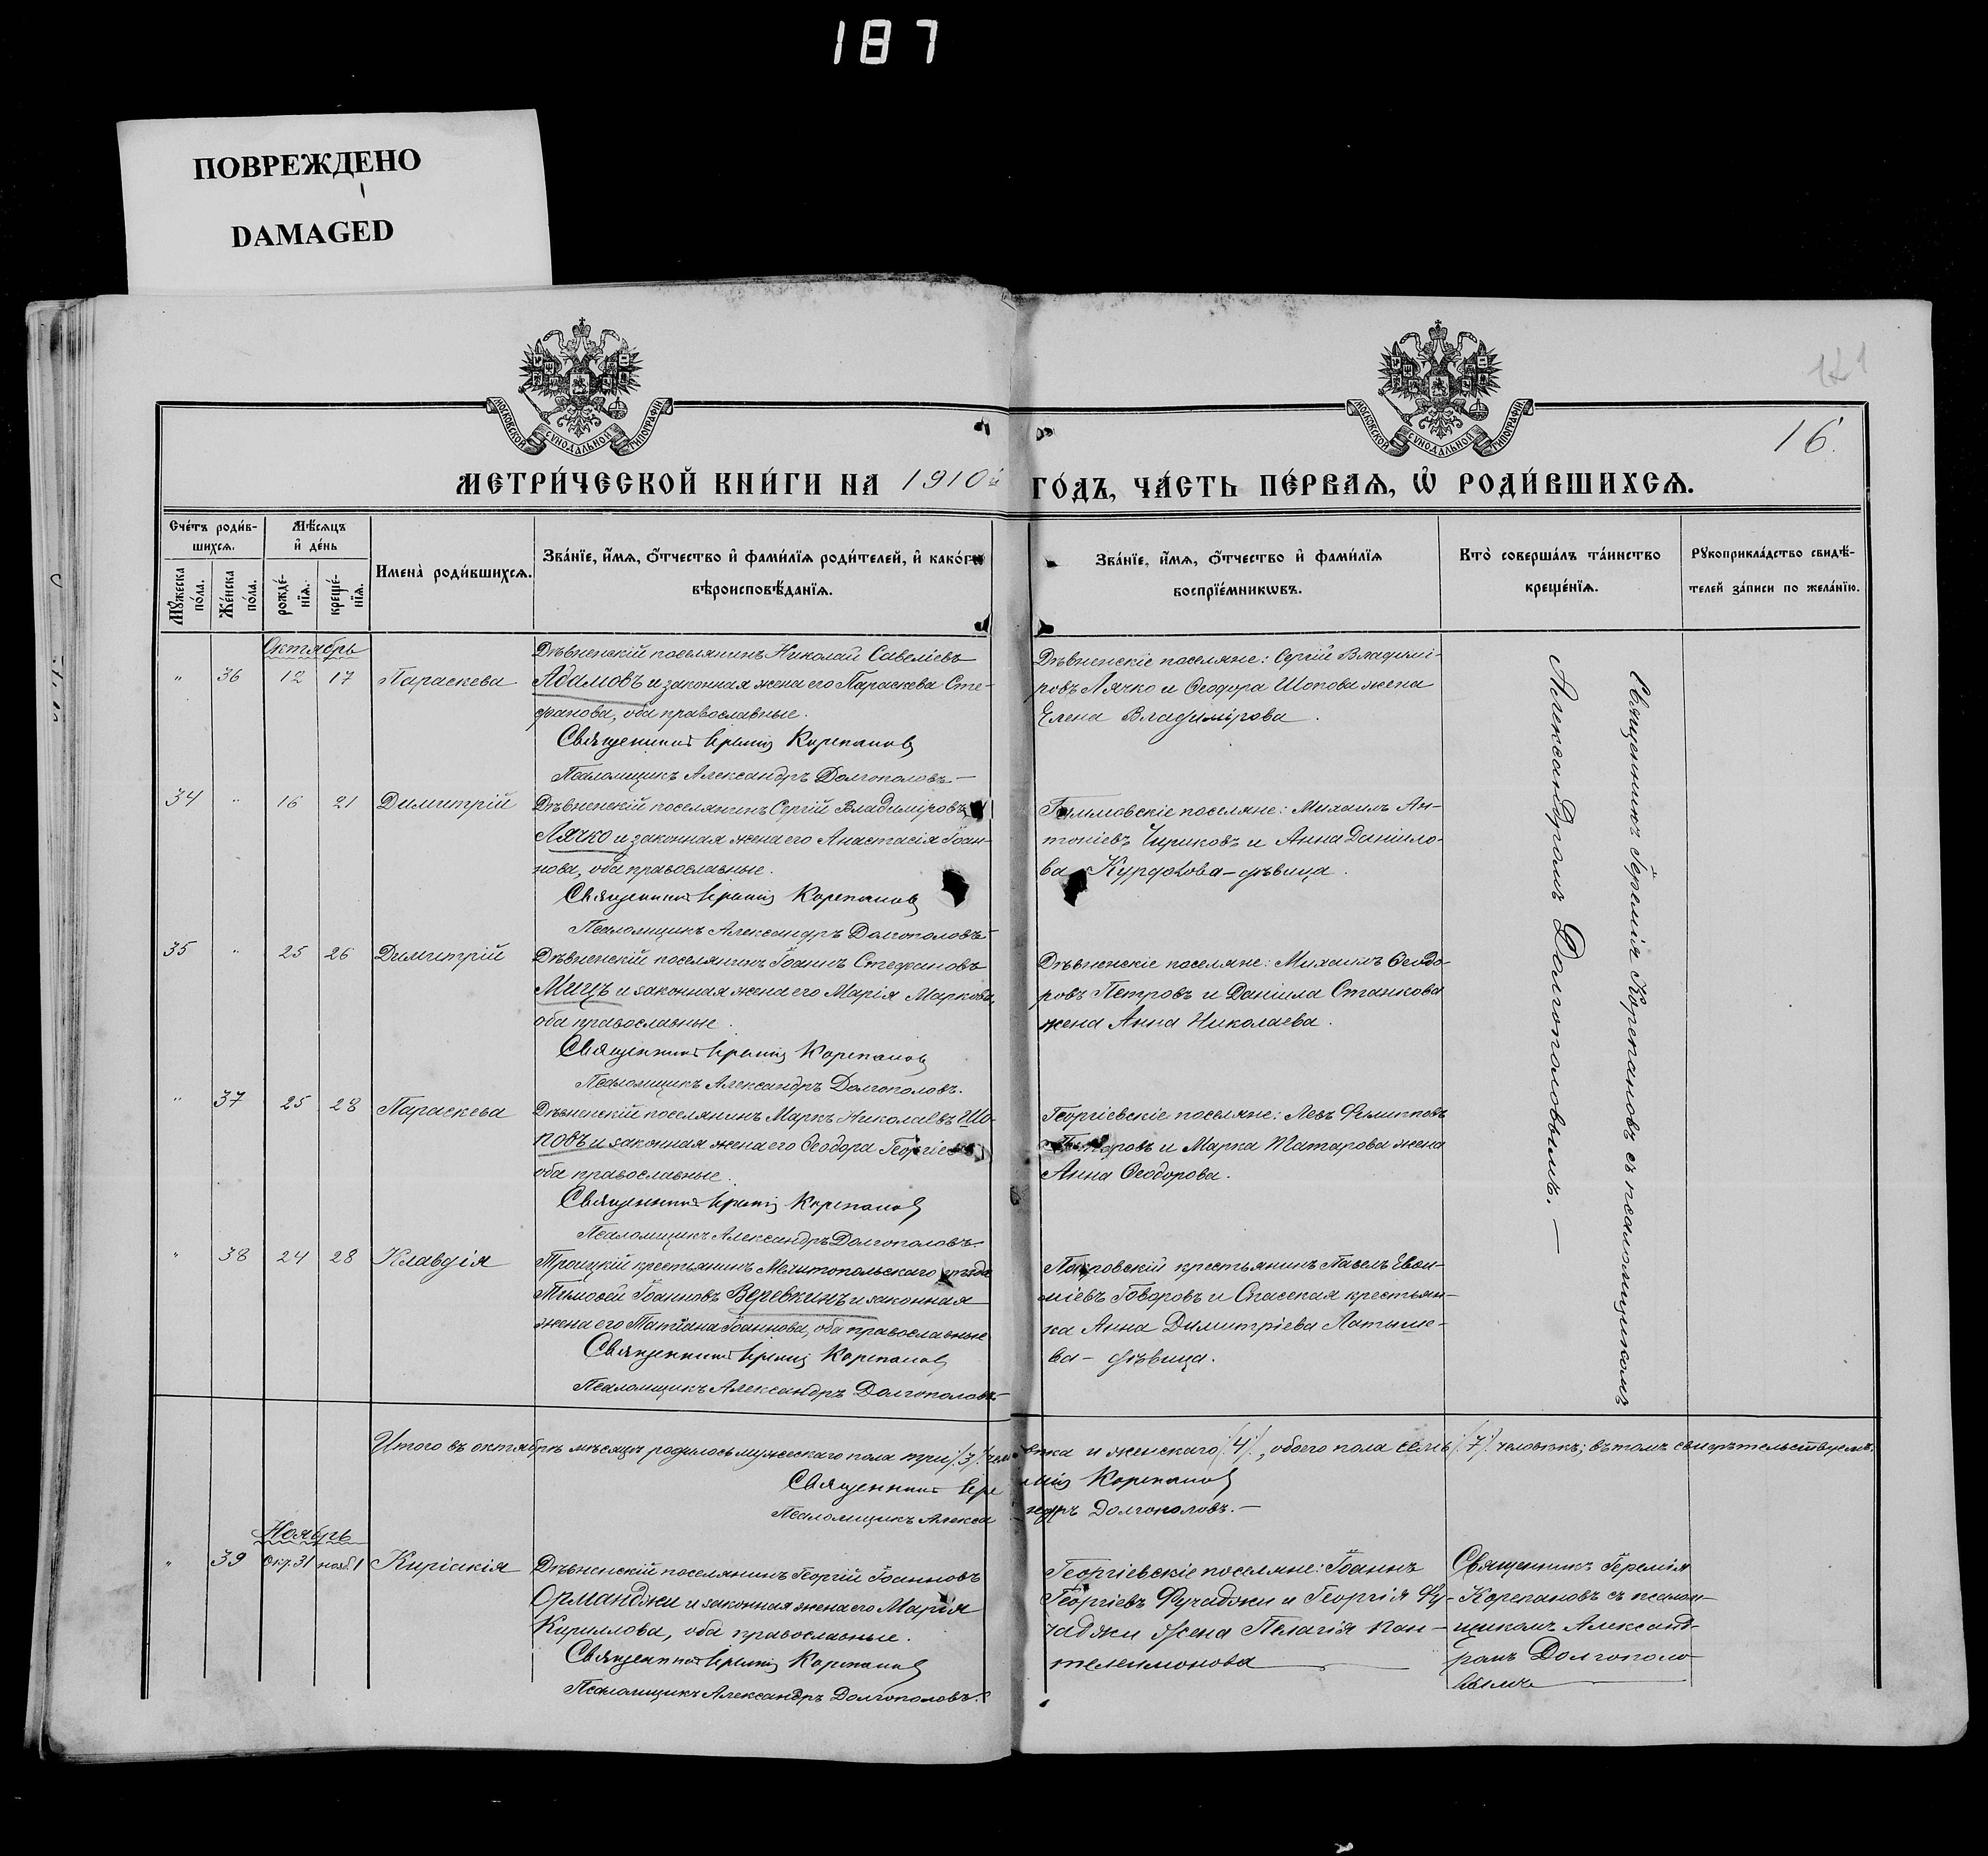 187
ПОВРЕЖДЕНО
DAMAGED
МОСКОВСКОЙ СУНОДАЛЬНОЙ ТИПОГРАФІИ
МОСКОВСКОЙ СУНОДАЛЬНОЙ ТИПОГРАФІИ
16.
МЕТРИ́ЧЕСКОЙ КНИ́ГИ НА 1910й ГО́ДЪ, ЧА́СТЬ ПЕ́РВАѦ, Ѡ҆ РОДИ́ВШИХСѦ.
Сче́тъ роди́в-
шихсѧ.
Мѣ́сѧцъ
и҆ де́нь
Мꙋ́жеска по́ла.
Же́нска по́ла.
рожде́-
нїѧ.
креще́-
нїѧ.
Имена̀ роди́вшихсѧ.
Зва́нїе, и҆́мѧ, ѻ҆́тчество и҆ фами́лїѧ роди́телей, и҆ како́гѡ
вѣроисповѣ́данїѧ.
Зва́нїе, и҆́мѧ, ѻ҆́тчество и҆ фами́лїѧ
воспрїе́мникѡвъ.
Кто̀ соверша́лъ та́инство
креще́нїѧ.
Рꙋкоприкла́дство свидѣ́-
телей за́писи по жела́нїю.
Октябрь
" 36 12 17 Параскева
Дѣвненскій поселянинъ Николай Савеліевъ
Адамовъ и законная жена его Параскева Сте-
фанова, оба православные.
Священникъ Іеремія Корепановъ
Псаломщикъ Александръ Долгополовъ.—
Дѣвненскіе поселяне: Сергій Владимі-
ровъ Лячко и Ѳеодора Шопова жена
Елена Владимірова.
34 " 16 21 Димитрій
Дѣвненскій поселянинъ Сергій Владиміровъ
Лячко и законная жена его Анастасія Іоан-
нова, оба православные.
Священникъ Іеремія Корепановъ
Псаломщикъ Александръ Долгополовъ.—
поселяне: Михаилъ Ан-
тоніевъ Чириковъ и Анна Даніило-
ва – дѣвица.
35 " 25 26 Димитрій
Дѣвненскій поселянинъ Іоаннъ Стефановъ
Мицъ и законная жена его Марія Маркова,
оба православные.
Священникъ Іеремія Корепановъ
Псаломщикъ Александръ Долгополовъ.
Дѣвненскіе поселяне: Михаилъ Ѳеодо-
ровъ Петровъ и Даніила Станкова
жена Анна Николаева.
" 37 25 28 Параскева
Дѣвненскій поселянинъ Маркъ Николаевъ Шо-
повъ и законная жена его Ѳеодора Георгіева
оба православные.
Священникъ Іеремія Корепановъ
Псаломщикъ Александръ Долгополовъ.
Георгіевскіе поселяне: Левъ Филипповъ
и Марка Татарова жена
Анна Ѳеодорова.
" 38 24 28 Клавдія
Троицкій крестьянинъ Мелитопольскаго уѣзда
Тимоѳей Іоанновъ Веревкинъ и законная
жена его Татіана Іоаннова, оба православные
Священникъ Іеремія Корепановъ
Псаломщикъ Александръ Долгополовъ
Покровскій крестьянинъ Павелъ Евѳи-
міевъ Говоровъ и Спасская крестьян-
ка Анна Димитріева Латыше-
ва – дѣвица.
Священникъ Іеремія Корепановъ съ псаломщикомъ
Александромъ Долгополовымъ.—
Итого въ октябрѣ мѣсяцѣ родилось мужескаго пола три /3/ человѣка и женскаго /4/, обоего пола семь /7/ человѣкъ; въ томъ свидѣтельствуемъ:
Священникъ Іеремія Корепановъ
Псаломщикъ Александръ Долгополовъ.—
Ноябрь
" 39 Окт.31 нояб.1 Киріакія
Дѣвненскій поселянинъ Георгій Іоанновъ
Орманджи и законная жена его Марія
Кириллова, оба православные.
Священникъ Іеремія Корепановъ
Псаломщикъ Александръ Долгополовъ.
Георгіевскіе поселяне: Іоаннъ
Георгіевъ Фучаджи и Георгія Фу-
чаджи жена Пелагія Пан-
телеимонова
Священникъ Іеремія
Корепановъ съ псалом-
щикомъ Александ-
ромъ Долгополо-
вымъ